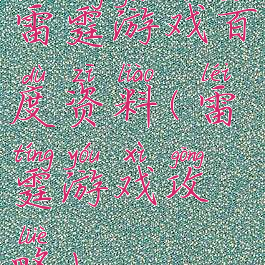 雷霆游戏百
dù zī liào léi
度资料(雷
tíng yóu xì gōng
霆游戏攻
lüè
略)